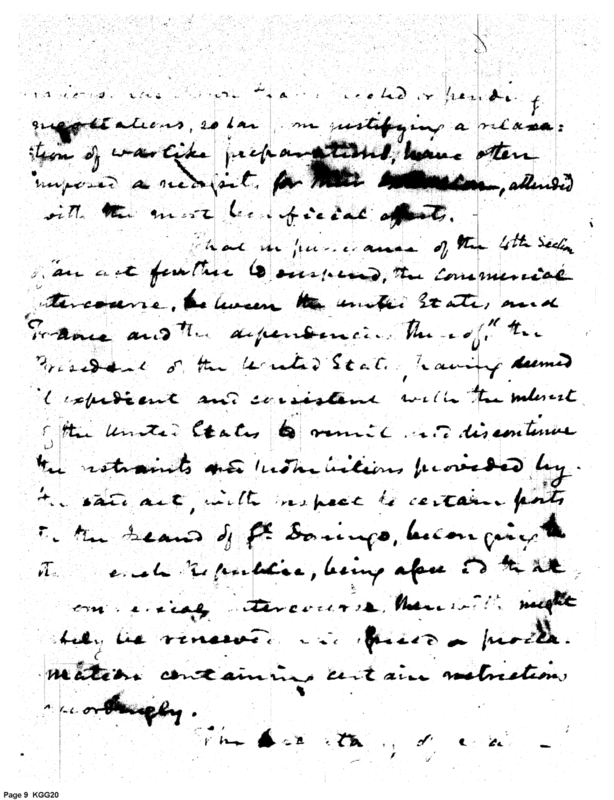 or pending
negotiations, so far from justifying a relaxa=
tion of warlike preparations, have often
imposed a necessity for their extension, attended
with the most beneficial effects.
That in pursuance of the 4th Section
of "an act further to suspend, the commercial
intercourse, between the United States and
France and the dependencies thereof," the
President of the United States, having deemed
it expedient and consistent with the interest
of the United States to remit and discontinue
the restraints and prohibitions provided by
the said act, with respect to certain ports
in the Island of St. Domingo, belonging to
the French Republic, being assured that
commercial intercourse therewith might
safely be renewed issued a procla-
mation containing certain restrictions
accordingly.
The Secretary of
Page 9 KGG20